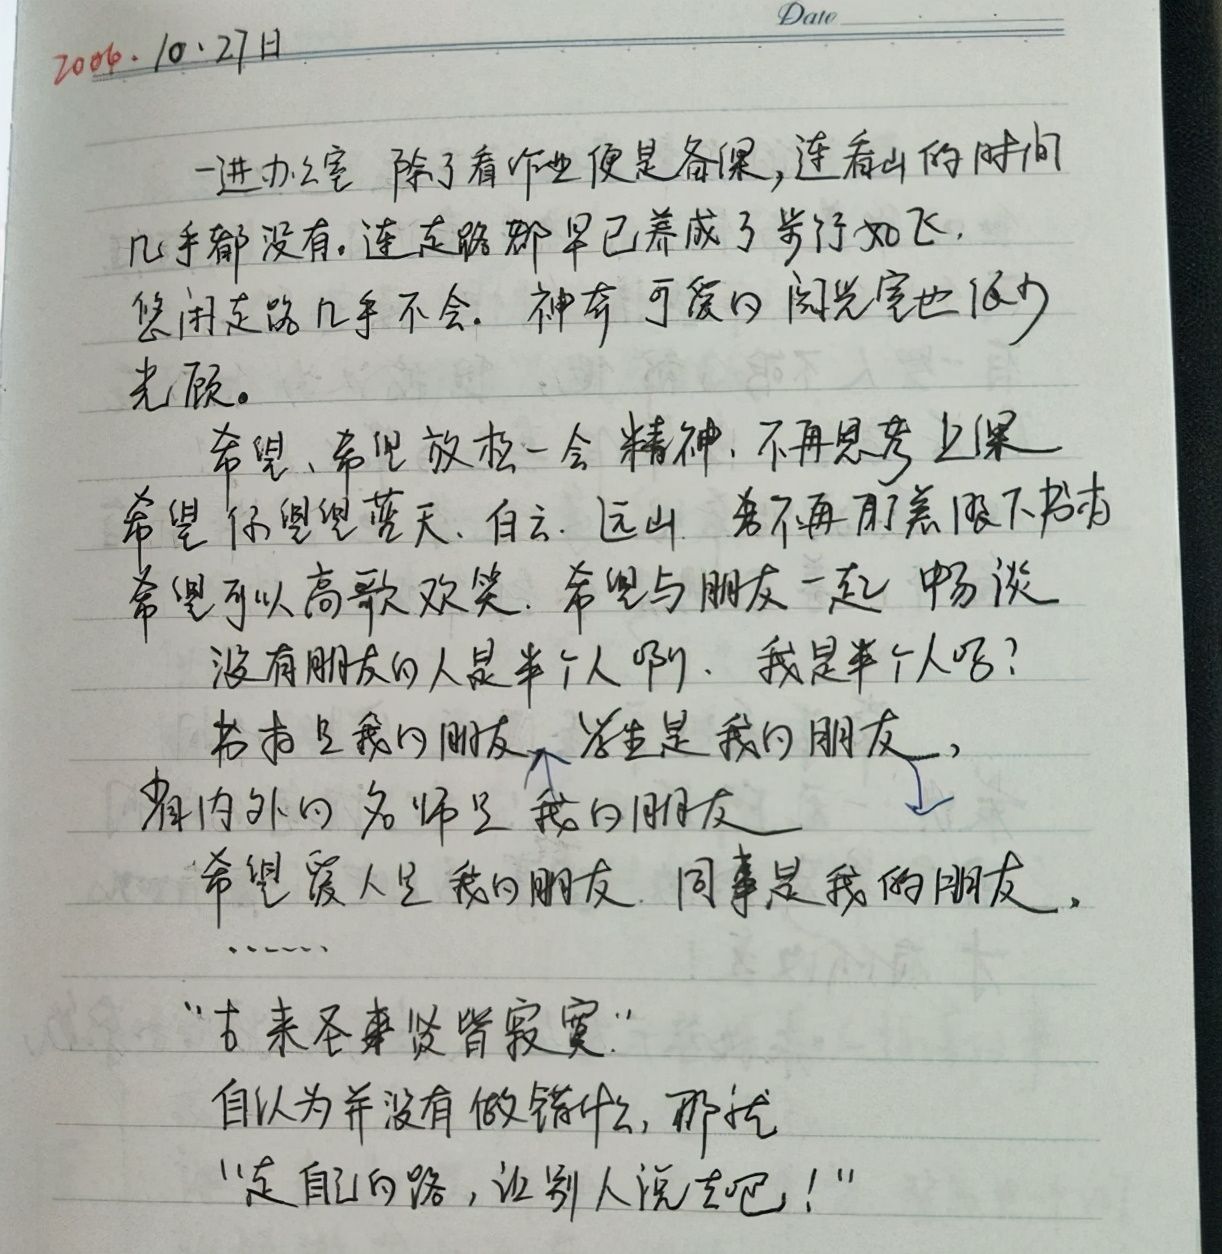 Date
2006.10.27日
一进办公室 除了看作业便是备课,连看山的时间
几乎都没有。连走路都早已养成了步行如飞.
悠闲走路几乎不会. 神奇可爱的阅览室也很少
光顾。
希望、希望放松一会精神.不再思考上课
希望你望望蓝天、白云.远山 不再 下书本
希望可以高歌欢笑.希望与朋友一起畅谈
没有朋友的人是半个人啊. 我是半个人吗?
书本是我的朋友 学生是我的朋友,
省内外的名师是我的朋友
希望爱人是我的朋友.同事是我的朋友,
......
"古来圣贤皆寂寞."
自认为并没有做错什么,那就
"走自己的路,让别人说去吧!"